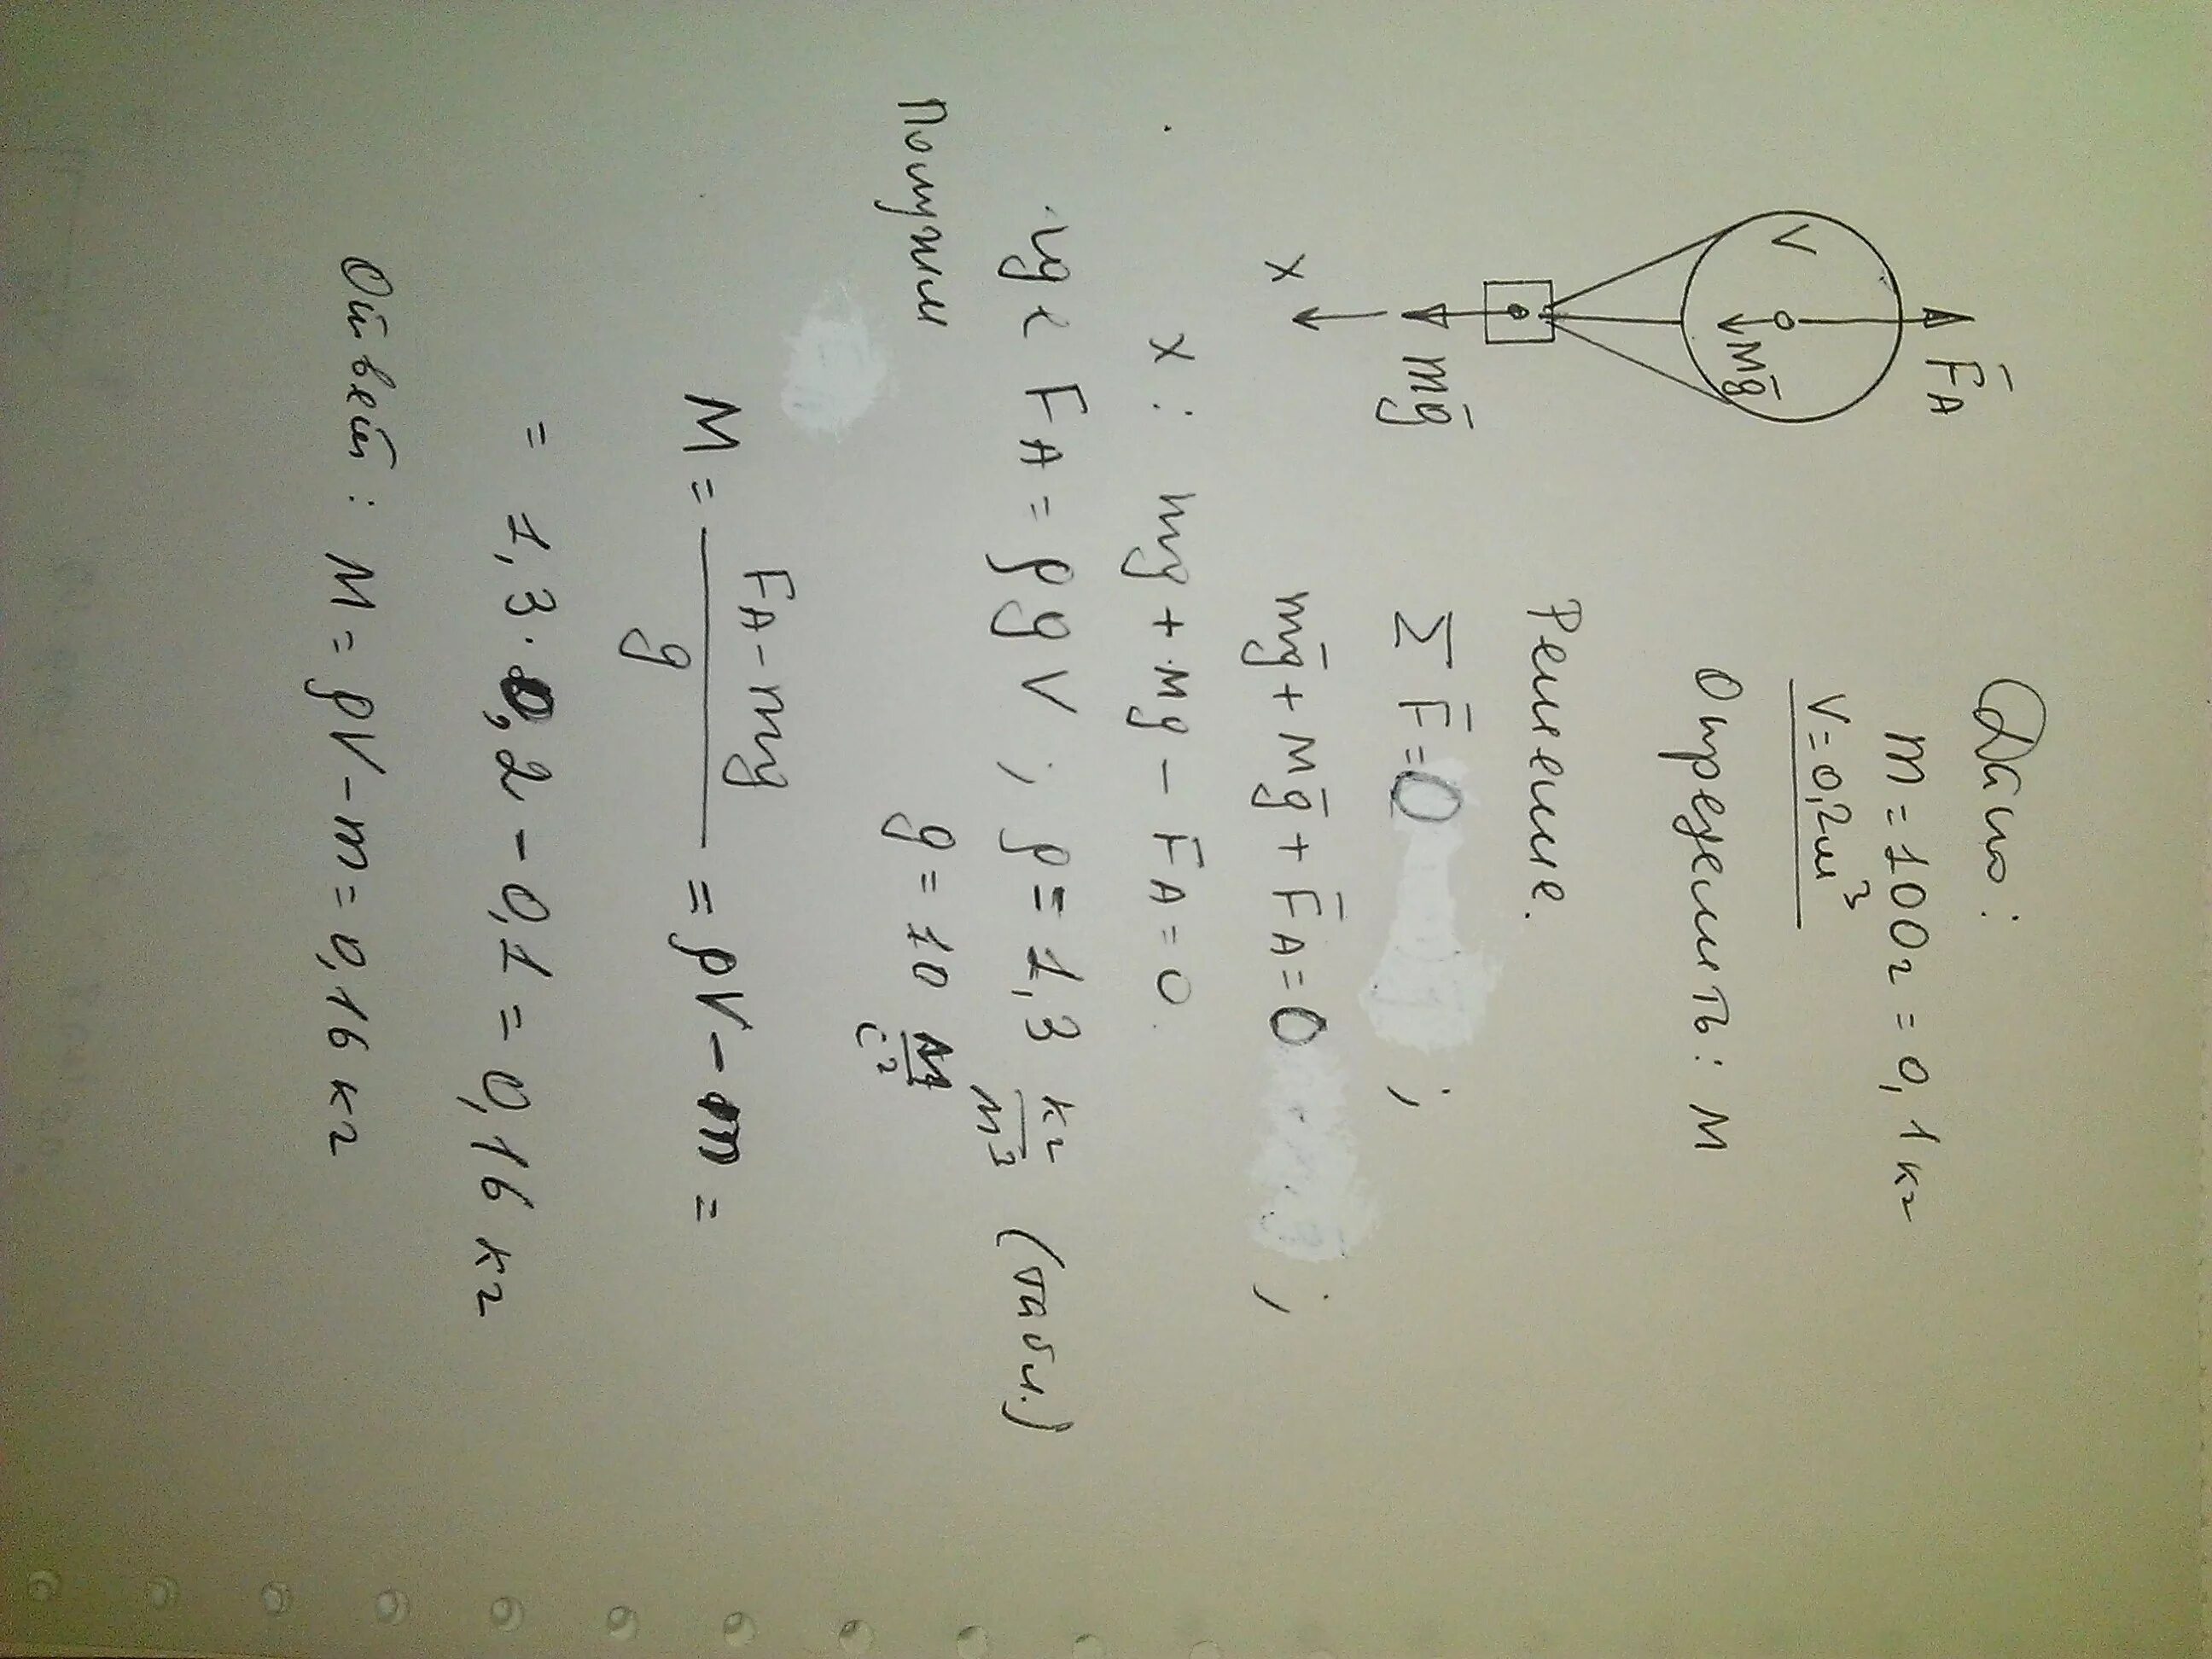 Дано:
m = 100г = 0,1 кг
V = 0,2м³
Определить: M
F̄A
V
Mḡ
mḡ
X
Решение.
Σ F̄ = 0 ;
mḡ + Mḡ + F̄A = 0 ;
x : mg + Mg – FA = 0.
где FA = ρgV ; ρ = 1,3 кг/м³ (табл.)
g = 10 м/с²
Получим
M = (FA – mg)/g = ρV – m =
= 1,3 · 0,2 – 0,1 = 0,16 кг
Ответ: M = ρV – m = 0,16 кг